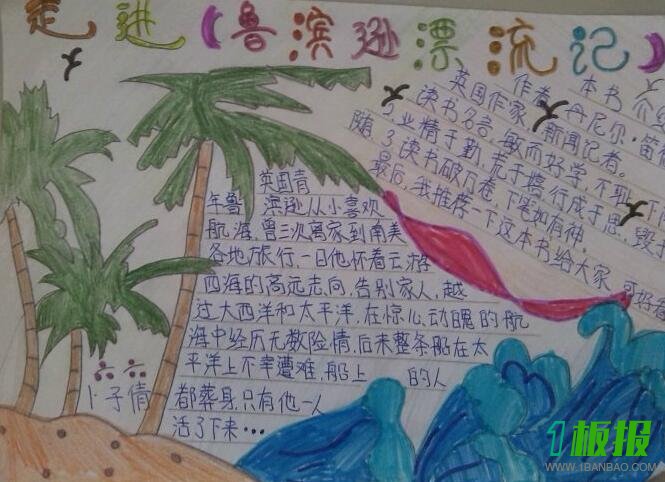 走进《鲁滨逊漂流记》
作者
本书
英国作家,丹尼尔·笛
新闻记者。
读书名言,敏而好学,不耻下
随
业精于勤,荒于嬉,行成于思,毁于
3.读书破万卷,下笔如有神。
最后,我推荐一下这本书给大家
英国青
年鲁滨逊从小喜欢
航海,曾三次离家到南美
各地旅行,一日他怀着云游
四海的高远志向,告别家人,越
过大西洋和太平洋,在惊心动魄的航
海中经历无数险情,后来整条船在太
平洋上不幸遭难,船上 的人
都葬身,只有他一人
活了下来…
六六
卜子倩
1板报
WWW.1BANBAO.COM